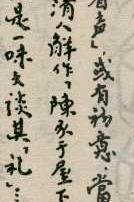 有声」，或有初意當
清人解作「陳於屋下
是一味大談其「礼」…